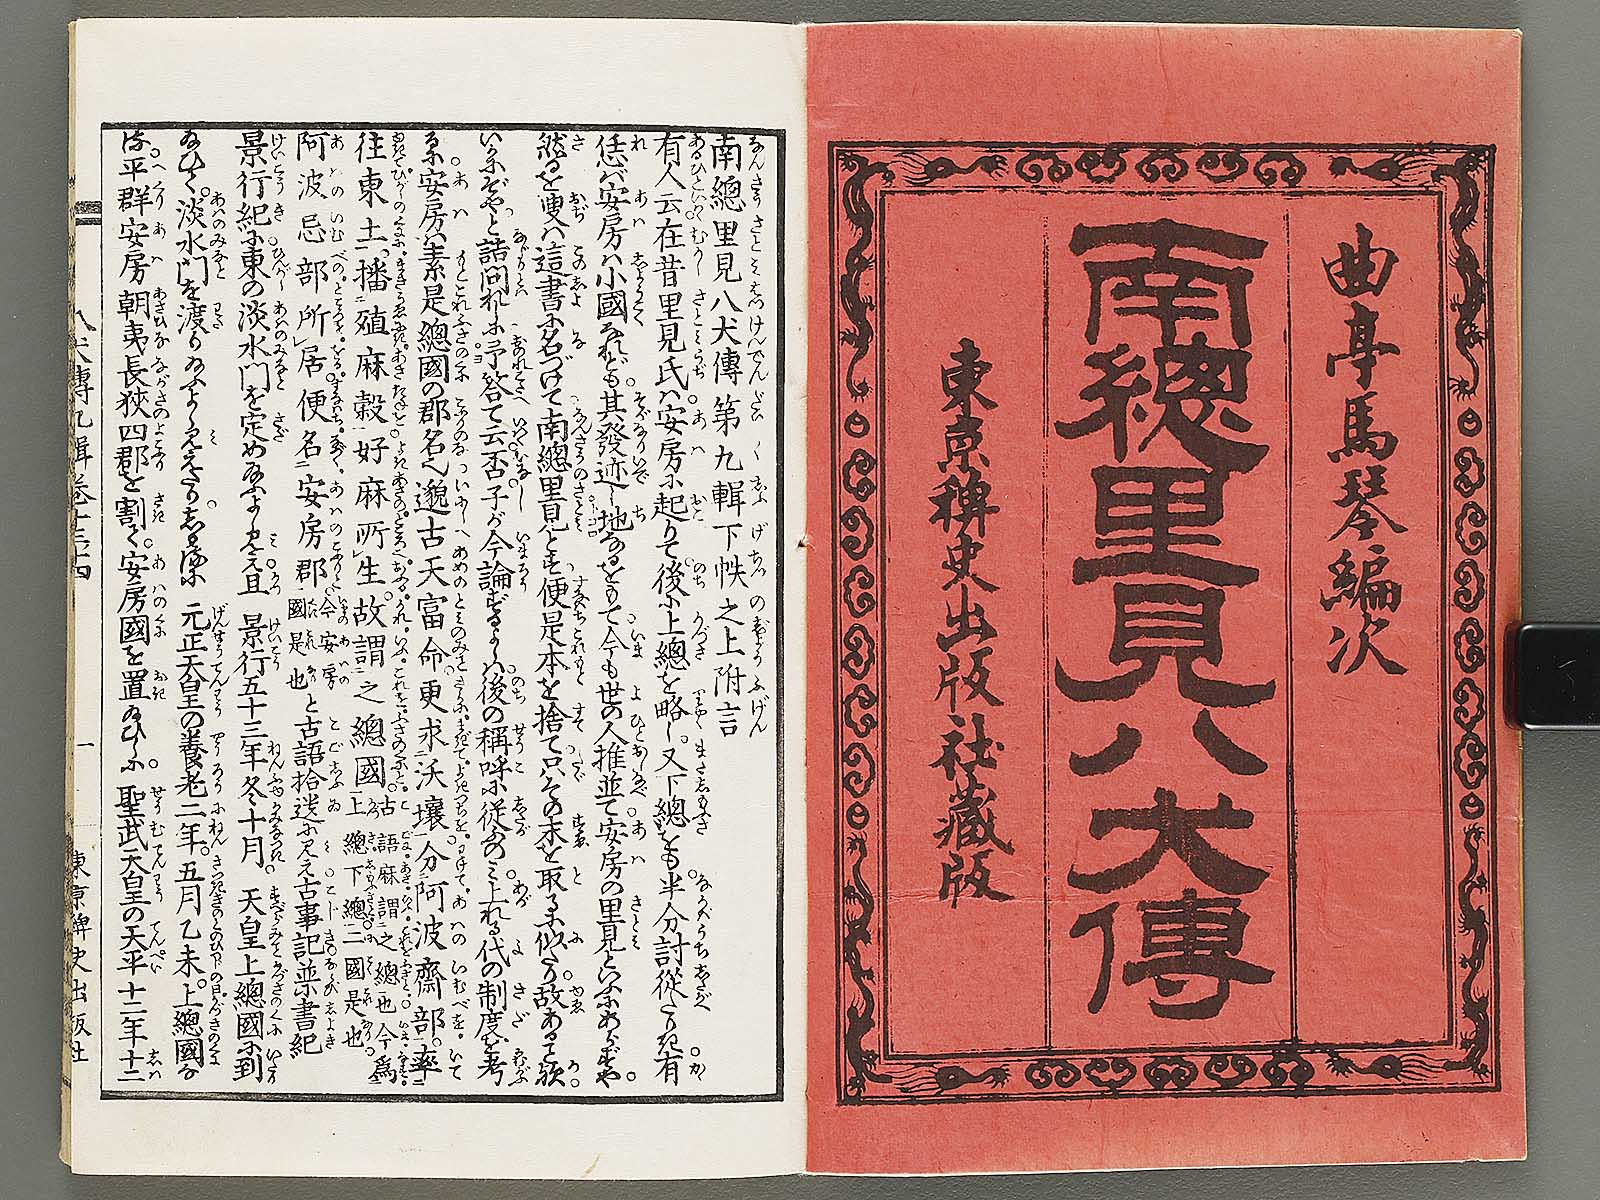 曲亭馬琴編次
南總里見八犬傳
東京稗史出版社藏版
南總里見八犬傳第九輯下帙之上附言
有人云在昔里見氏ハ安房に起りて後に上總を略し又下總をも半分討從たりき有
恁バ安房ハ小國なれども其發迹し地なるをもて今も世の人推並て安房の里見といふにあらずや
然るを這書に名づけて南總里見とす便是本を捨て只その末を取るに似たり故あるて歟
いかにぞやと詰問れに予答て云否子が今論ずるよしハ後の稱呼に從ふのミ上れる代の制度を考
るに安房ハ素是總國の郡名也邈古天富命更求沃壤分阿波齋部率
往東土播殖麻穀好麻所生故謂之總國
古語麻謂之總也今爲
上總下總二國是也
阿波忌部所居便名安房郡
今安房
國是也
と古語拾遺に見え古事記並に書紀
景行紀に東の淡水門を定めゐふよし見え且景行五十三年冬十月天皇上總國に到
ゐひて淡水門を渡りゐふよし見えたりしる後に元正天皇の養老二年五月乙未上總國な
る平群安房朝夷長狹四郡を割て安房國を置ゐひしに聖武天皇の天平十二年十二
八犬傳九輯卷十三四
一
東京稗史出版社